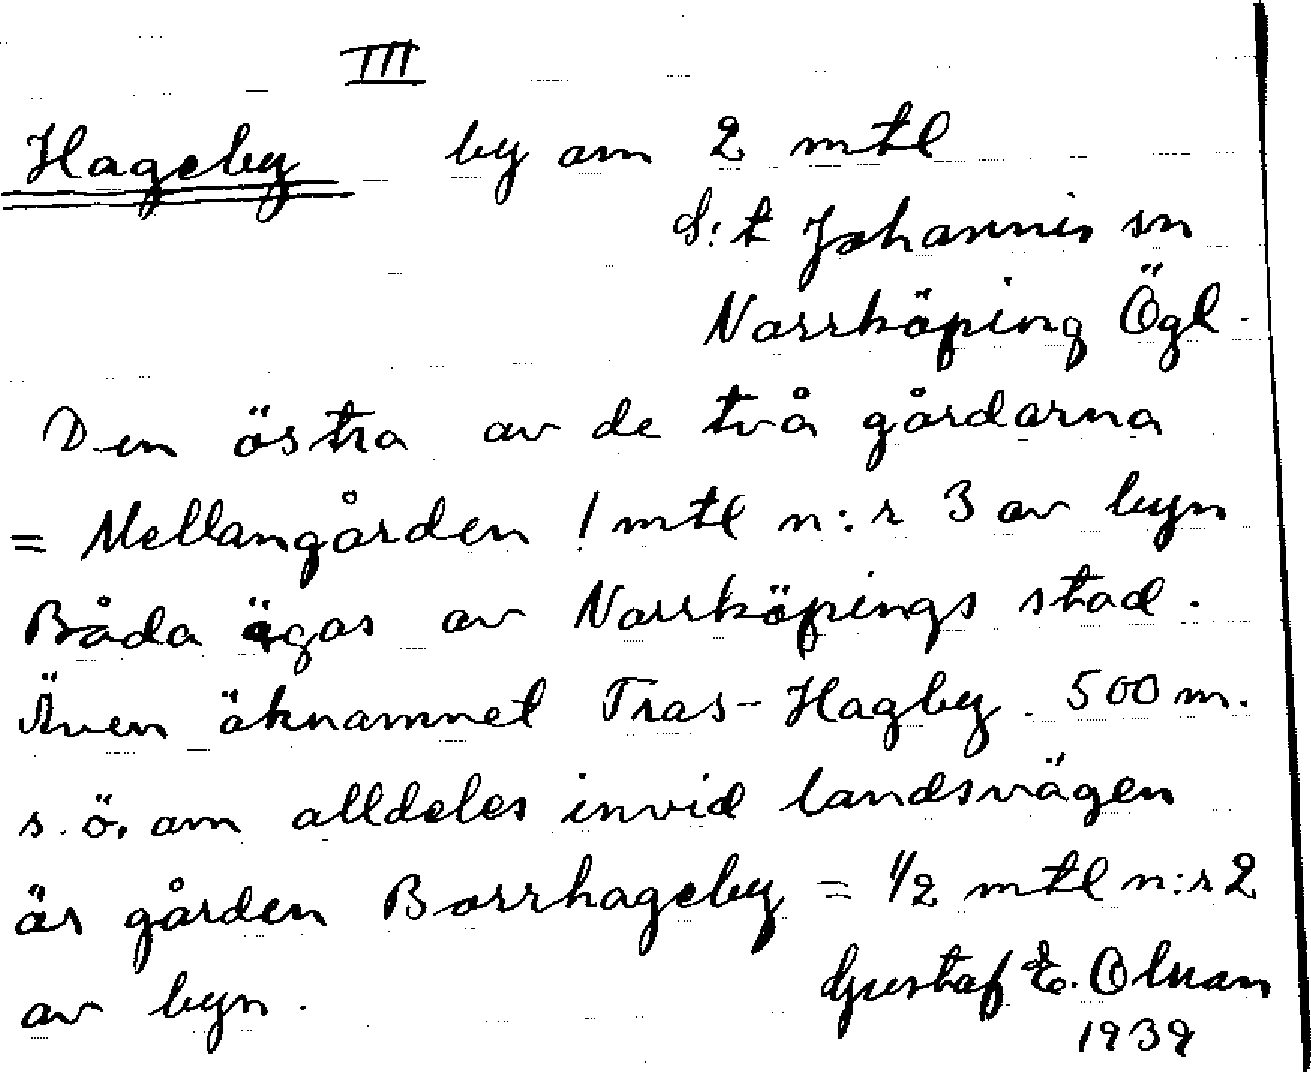 III
Hageby by om 2 mtl
S:t Johannis sn
Norrköping Ögl.
Den östra av de två gårdarna
= Mellangården 1 mtl n:r 3 av byn
Båda ägas av Norrköpings stad.
Även öknamnet Tras-Hagby. 500 m.
s.ö. om alldeles invid landsvägen
är gården Borrhageby = 1/2 mtl n:r 2
av byn.
Gustaf E. Olsson
1939